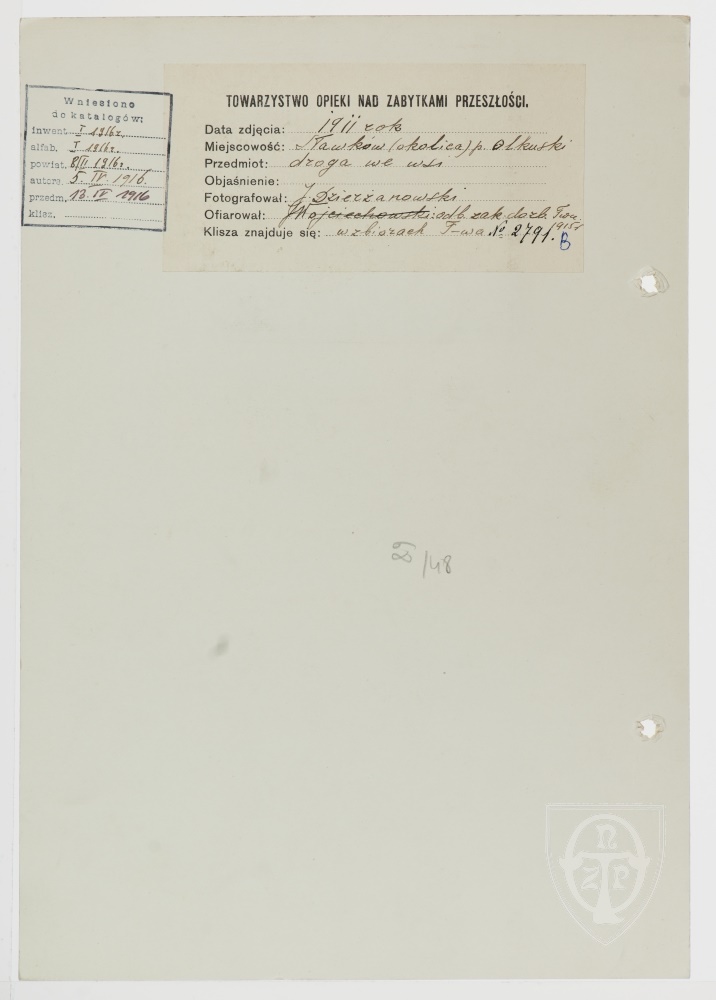 Wniesiono
do katalogów:
inwent. I 1916 r.
alfab. I 1916 r.
powiat. 8/II 1916 r.
autora 5. IV. 1916.
przedm. 13 IV 1916
klisz.
TOWARZYSTWO OPIEKI NAD ZABYTKAMI PRZESZŁOŚCI.
Data zdjęcia: 1911 rok
Miejscowość: Sławków (okolica) p. olkuski
Przedmiot: droga we wsi
Objaśnienie:
Fotografował: J Dzierżanowski
Ofiarował: Wojciechowski: odb. zak. 1915 r
Klisza znajduje się: w zbiorach T-wa. № 2791. B
/48
O N Z P